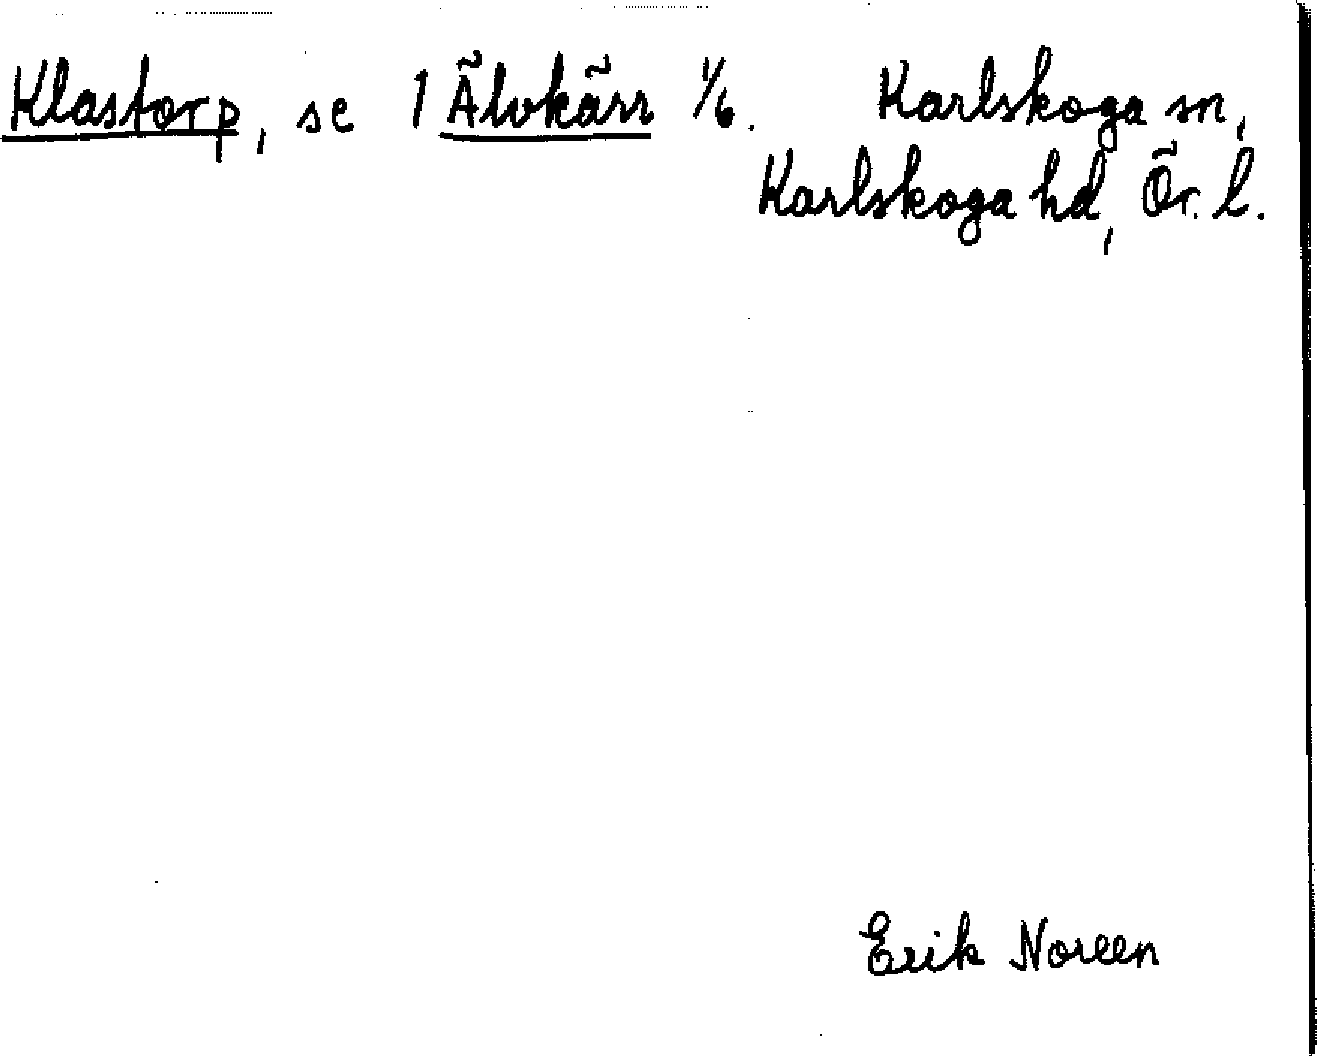 Klastorp, se 1 Älvkärr 1/6. Karlskoga sn,
Karlskoga hd, Ör. l.
Erik Noreen